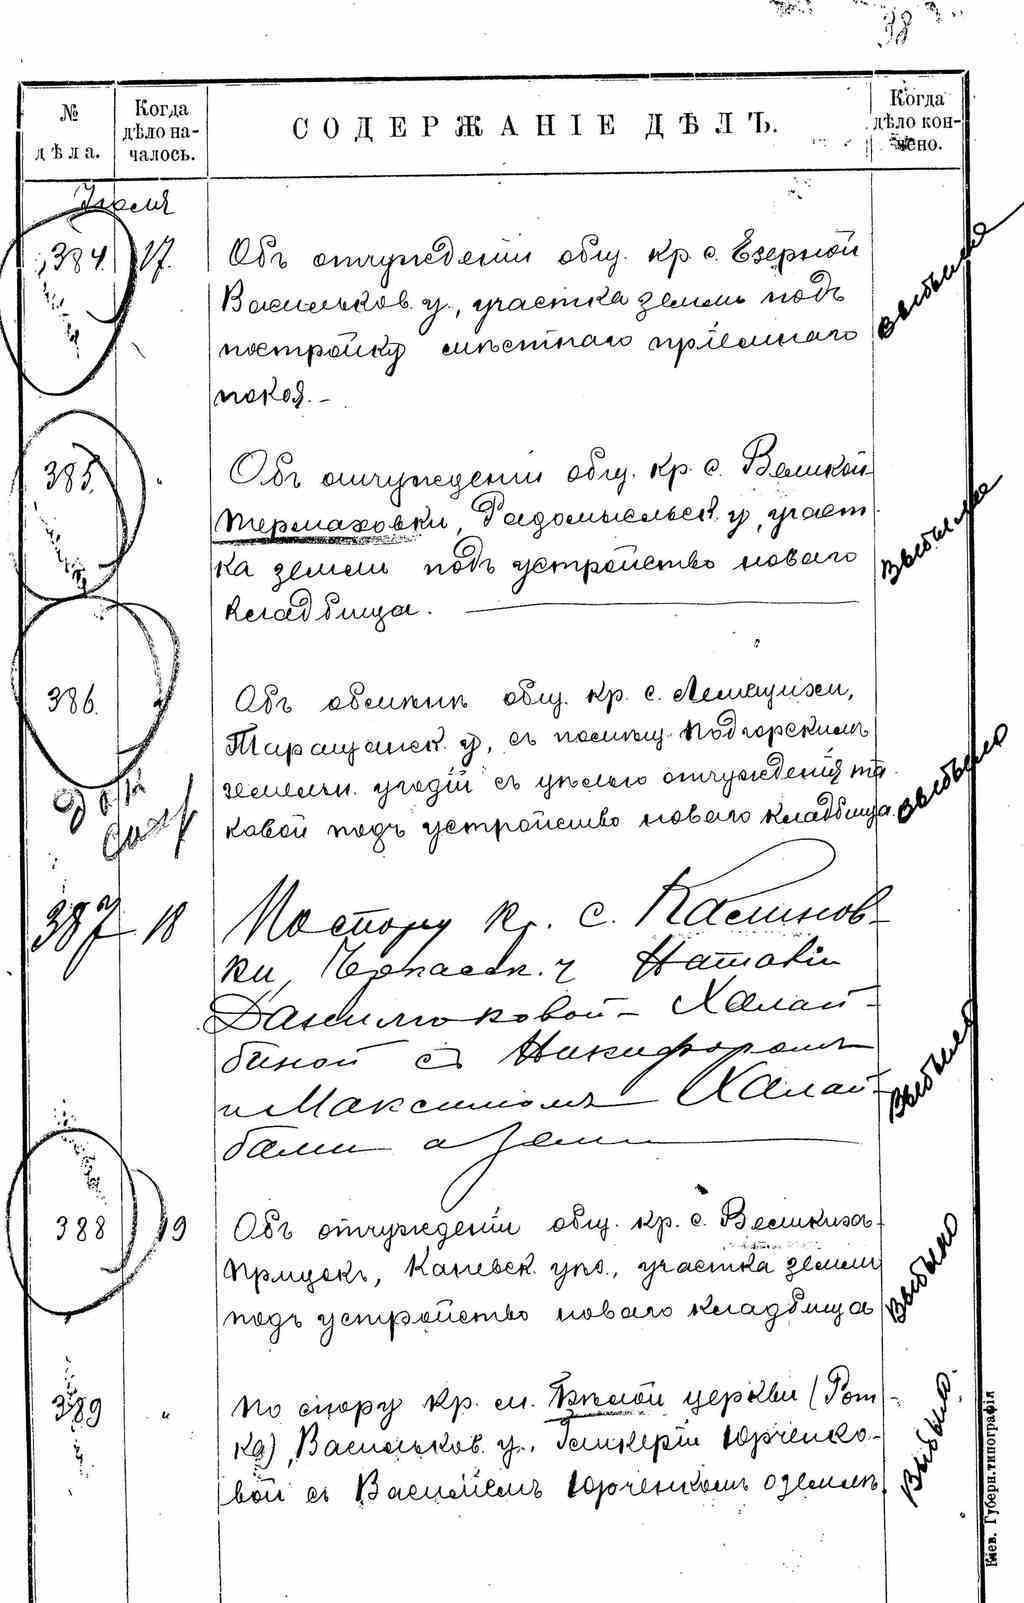 38
№ дѣла.
Когда дѣло началось.
СОДЕРЖАНІЕ ДѢЛЪ.
Когда дѣло кончено.
Іюля
384. 17. Объ отчужденіи общ. кр. с. Езерной
Васильков. у., участка земли подъ
постройку мѣстнаго пріемнаго
покоя. –
выбыло
385. " Объ отчужденіи общ. кр. с. Великой
Термаховки, Радомысльск. у., участ-
ка земли подъ устройство новаго
кладбища.
Выбыло
386. " Объ обмѣнѣ общ. кр. с. Лемещихи,
Таращанск. у., съ помѣщ. Подгорскимъ
земельн. угодій съ цѣлью отчужденія та-
ковой подъ устройство новаго кладбища.
выбыло
387 18 По спору кр. с. Калинов-
ки, Черкасск. у. Наталіи
Данилюковой-Халай-
биной съ Никифоромъ
и Максимомъ Халай-
бами о земли
Выбыло
388 19 Объ отчужденіи общ. кр. с. Великихъ-
Прицокъ, Каневск. у., участка земли
подъ устройство новаго кладбища
Выбыло
389 " По спору кр. м. Бѣлой церкви (Рот-
ка), Васильков. у., Гликеріи Юрченко-
вой съ Василіемъ Юрченкомъ о землѣ.
Выбыло.
Кіев. Губерн. типографія